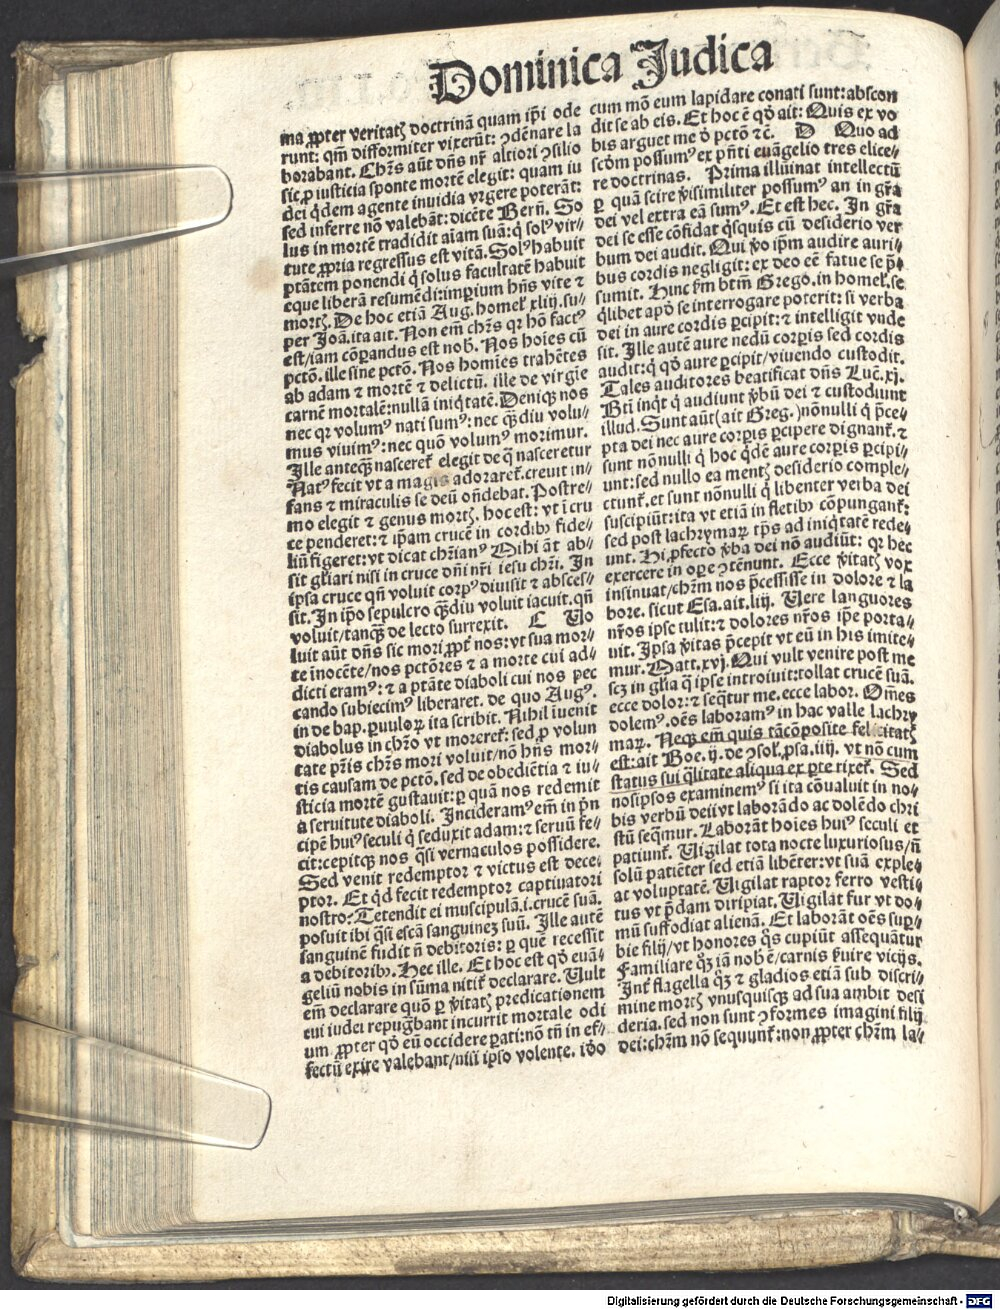 Dominica Judica
ma ꝓpter veritatꝫ doctrinā quam ip̄i ode
runt: qm̄ difformiter vixerūt: ↄdēnare la
borabant. Chr̄s aūt dn̄s nr̄ altiori ↄsilio
sic ꝓ iusticia sponte mortē elegit: quam iu
dei q̇dem agente inuidia vrgere poterāt:
sed inferre nō valebāt: dicēte Bern̄. So
lus in mortē tradidit aīam suā: q̇ sol⁹ vir⸗
tute ꝓpria regressus est vitā. Sol⁹ habuit
ptātem ponendi q̇ solus facultatē habuit
eque liberā resumēdi: imꝑium hn̄s vite ⁊
mortꝫ. De hoc etiā Aug. homel̓ xliij. su⸗
per Joā. ita ait. Non em̄ chr̄s qr hō fact⁹
est/iam cōꝑandus est nob̓. Nos hoīes cū
pctō. ille sine pctō. Nos homīes trahētes
ab adam ⁊ mortē ⁊ delictū. ille de virgīe
carnē mortalē: nullā iniq̇tatē. Deniqꝫ nos
nec qr volum⁹ nati sum⁹: nec qꝫdiu volu⸗
mus viuim⁹: nec quō volum⁹ morimur.
Ille anteqꝫ nasceret̓ elegit de q̄ nasceretur
Nat⁹ fecit vt a magis adoraret̓. creuit in⸗
fans ⁊ miraculis se deū on̄debat. Postre⸗
mo elegit ⁊ genus mortꝫ. hoc est: vt ī cru
ce penderet: ⁊ ip̄am crucē in cordibꝫ fide⸗
liū figeret: vt dicat chr̄ian⁹ Mihi āt ab⸗
sit gl̄iari nisi in cruce dn̄i nr̄i iesu chr̄i. In
ip̄sa cruce qn̄ voluit corp⁹ diuisit ⁊ absces⸗
sit. In ip̄o sepulcro qꝫdiu voluit iacuit. qn̄
voluit/tanqꝫ de lecto surrexit. C Vo
luit aūt dn̄s sic mori ꝓpt̓ nos: vt sua mor⸗
te īnocēte/nos pctōres ⁊ a morte cui ad⸗
dicti eram⁹: ⁊ a ptāte diaboli cui nos pec
cando subiecim⁹ liberaret. de quo Aug⁹.
in de bap. ꝑuuloꝝ ita scribit. Nihil īuenit
diabolus in chr̄o vt moreret̓: sed ꝓ volun
tate pr̄is chr̄s mori voluit/nō hn̄s mor⸗
tis causam de pctō. sed de obediētia ⁊ iu⸗
sticia mortē gustauit: ꝑ quā nos redemit
a seruitute diaboli. Incideram⁹ em̄ in pn̄
cipē hui⁹ seculi q̇ seduxit adam: ⁊ seruū fe⸗
cit: cepitqꝫ nos q̇si vernaculos possidere.
Sed venit redemptor ⁊ victus est dece⸗
ptor. Et q̇d fecit redemptor captiuatori
nostro: Tetendit ei muscipulā. i. crucē suā.
posuit ibi q̇si escā sanguineꝫ suū. Ille autē
sanguinē fudit n̄ debitoris: ꝑ quē recessit
a debitoribꝫ. Hec ille. Et hoc est qd̓ euā⸗
geliū nobis in sūma nitit̓ declarare. Vult
em̄ declarare quō ꝑ v̓itatꝫ predicationem
cui iudei repug̈bant incurrit mortale odi
um ꝓpter qd̓ eū occidere ꝑati: nō tn̄ in ef⸗
fectū exire valebant/nisi ip̄so volente. iō̄o
cum mō eum lapidare conati sunt: abscon
dit se ab eis. Et hoc ē qd̓ ait: Quis ex vo
bis arguet me d̓ pctō ⁊c̄. D Quo ad
scd̓m possum⁹ ex pn̄ti euāgelio tres elice⸗
re doctrinas. Prima illuīnat intellectū
ꝑ quā scire v̓isimiliter possum⁹ an in gr̄a
dei vel extra eā sum⁹. Et est hec. In gr̄a
dei se esse cōfidat q̇squis cū desiderio ver
bum dei audit. Qui v̓o ip̄m audire auri⸗
bus cordis negligit: ex deo eē fatue se p̄⸗
sumit. Hinc s̓m btm̄ Grego. in homel̓. se
q̇libet apd̓ se interrogare poterit: si verba
dei in aure cordis ꝑcipit: ⁊ intelligit vnde
sit. Ille autē aure nedū corꝑis sed cordis
audit: q̇ qd̓ aure ꝑcipit/viuendo custodit.
Tales auditores beatificat dn̄s Luc̄. xj.
Bti̇ inq̇t q̇ audiunt v̓bū dei ⁊ custodiunt
illud. Sunt aūt (ait Greg.) nōnulli q̇ p̄ce⸗
pta dei nec aure corꝑis ꝑcipere dignant̓. ⁊
sunt nōnulli q̇ hoc q̇dē aure corꝑis ꝑcipi⸗
unt: sed nullo ea mentꝫ desiderio comple⸗
ctunt̓. et sunt nōnulli q̇ libenter verba dei
suscipiūt: ita vt etiā in fletibꝫ cōpungant̓:
sed post lachrymaꝝ tp̄s ad iniq̇tatē rede⸗
unt. Hi ꝓfecto v̓ba dei nō audiūt: qr hec
exercere in oꝑe ↄtēnunt. Ecce v̓itatꝫ vox
insinuat/chr̄m nos p̄cessisse in dolore ⁊ la
bore. sicut Esa. ait. liij. Vere languores
nr̄os ipse tulit: ⁊ dolores nr̄os ip̄e porta⸗
uit. Ipsa v̓itas p̄cepit vt eū in his imite⸗
mur. Matt. xvj. Qui vult venire post me
scꝫ in gl̄ia q̄ ipse introiuit: tollat crucē suā.
ecce dolor: ⁊ seq̄tur me. ecce labor. Om̄es
dolem⁹. oēs laboram⁹ in hac valle lachry
maꝝ. Neqꝫ em̄ quis tā cōposite felicitatꝫ
est: ait Boe. ij. de ↄsol̓. ꝓsa. iiij. vt nō cum
status sui q̄litate aliqua ex ꝑte rixet̓. Sed
nosipsos examinem⁹ si ita cōualuit in no⸗
bis verbū dei: vt laborādo ac dolēdo chri
stū seq̄mur. Laborāt hoīes hui⁹ seculi et
patiunt̓. Vigilat tota nocte luxuriosus/n̄
solū patiēter sed etiā libēter: vt suā exple⸗
at voluptatē. Vigilat raptor ferro vesti⸗
tus vt p̄dam diripiat. Vigilat fur vt do⸗
mū suffodiat alienā. Et laborāt oēs suꝑ⸗
bie filij/vt honores q̇s cupiūt assequātur
Familiare qꝫ iā nob̓ ē/carnis s̓uire vicijs.
Int̓ flagella qꝫ ⁊ gladios etiā sub discri⸗
mine mortꝫ vnusquisqꝫ ad sua ambit desi
deria. sed non sunt ↄformes imagini filij
dei: chr̄m nō sequunt̓: non ꝓpter chr̄m la⸗
Digitalisierung gefördert durch die Deutsche Forschungsgemeinschaft - DFG